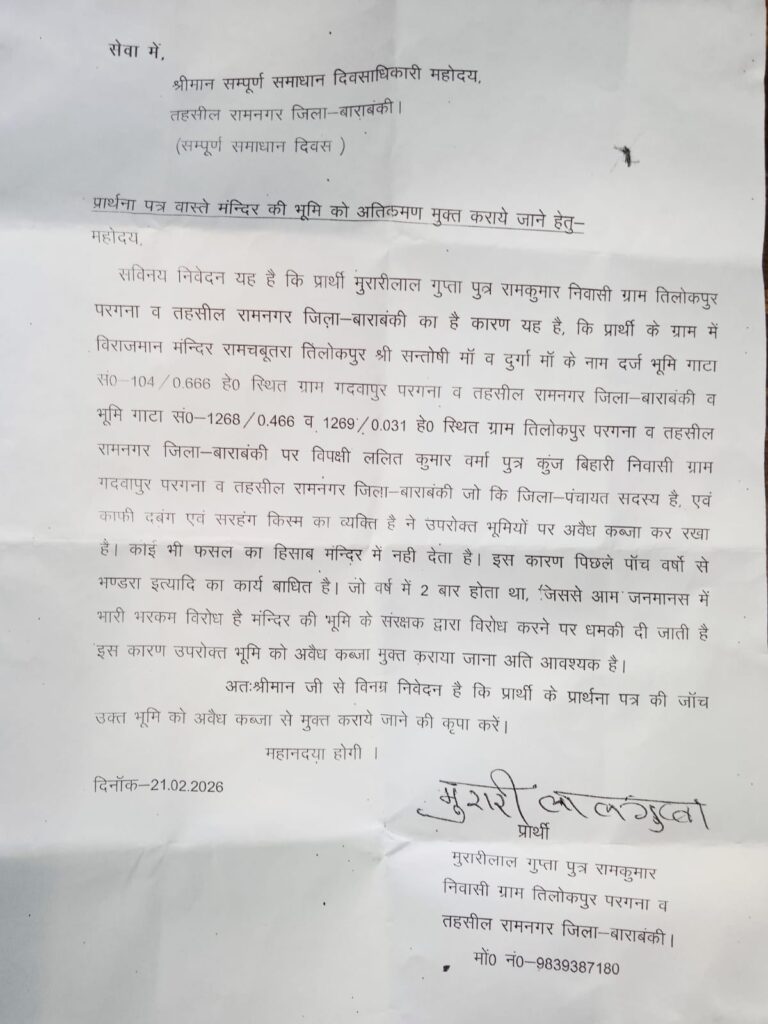 सेवा में,
श्रीमान सम्पूर्ण समाधान दिवसाधिकारी महोदय,
तहसील रामनगर जिला–बाराबंकी।
(सम्पूर्ण समाधान दिवस )
प्रार्थना पत्र वास्ते मंन्दिर की भूमि को अतिकमण मुक्त कराये जाने हेतु–
महोदय,
सविनय निवेदन यह है कि प्रार्थी मुरारीलाल गुप्ता पुत्र रामकुमार निवासी ग्राम तिलोकपुर
परगना व तहसील रामनगर जिला–बाराबंकी का है कारण यह है, कि प्रार्थी के ग्राम में
विराजमान मंन्दिर रामचबूतरा तिलोकपुर श्री सन्तोषी मॉ व दुर्गा मॉ के नाम दर्ज भूमि गाटा
सं0–104/0.666 हे0 स्थित ग्राम गदवापुर परगना व तहसील रामनगर जिला–बाराबंकी व
भूमि गाटा सं0–1268/0.466 व 1269/0.031 हे0 स्थित ग्राम तिलोकपुर परगना व तहसील
रामनगर जिला–बाराबंकी पर विपक्षी ललित कुमार वर्मा पुत्र कुंज बिहारी निवासी ग्राम
गदवापुर परगना व तहसील रामनगर जिला–बाराबंकी जो कि जिला–पंचायत सदस्य है, एवं
काफी दबंग एवं सरहंग किस्म का व्यक्ति है ने उपरोक्त भूमियों पर अवैध कब्जा कर रखा
है। काई भी फसल का हिसाब मंन्दिर में नही देता है। इस कारण पिछले पॉच वर्षो से
भण्डरा इत्यादि का कार्य बाधित है। जो वर्ष में 2 बार होता था, जिससे आम जनमानस में
भारी भरकम विरोध है मंन्दिर की भूमि के संरक्षक द्वारा विरोध करने पर धमकी दी जाती है
इस कारण उपरोक्त भूमि को अवैध कब्जा मुक्त कराया जाना अति आवश्यक है।
अतःश्रीमान जी से विनम्र निवेदन है कि प्रार्थी के प्रार्थना पत्र की जॉच
उक्त भूमि को अवैध कब्जा से मुक्त कराये जाने की कृपा करें।
महानदया होगी ।
दिनॉक–21.02.2026
मुरारी लालगुप्ता
प्रार्थी
मुरारीलाल गुप्ता पुत्र रामकुमार
निवासी ग्राम तिलोकपुर परगना व
तहसील रामनगर जिला–बाराबंकी।
मों0 नं0–9839387180